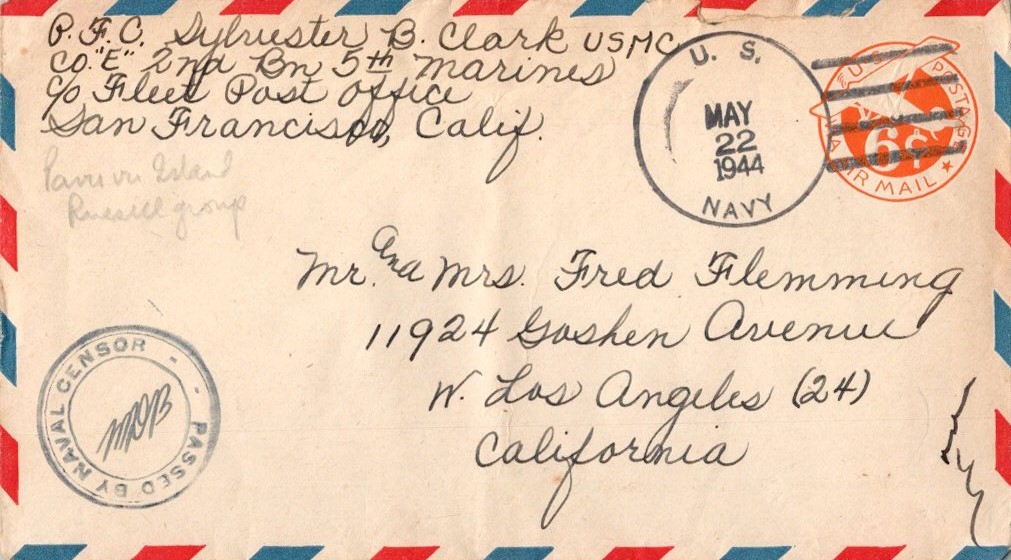 P.F.C. Sylvester B. Clark USMC
Co. "E" 2nd Bn 5th Marines
c/o Fleet Post Office
San Francisco, Calif.
Pavuvu Island
Russell group
U. S.
MAY
22
1944
NAVY
U.S. POSTAGE
6¢
VIA AIR MAIL
Mr. and Mrs. Fred Flemming
11924 Goshen Avenue
W. Los Angeles (24)
California
PASSED BY NAVAL CENSOR